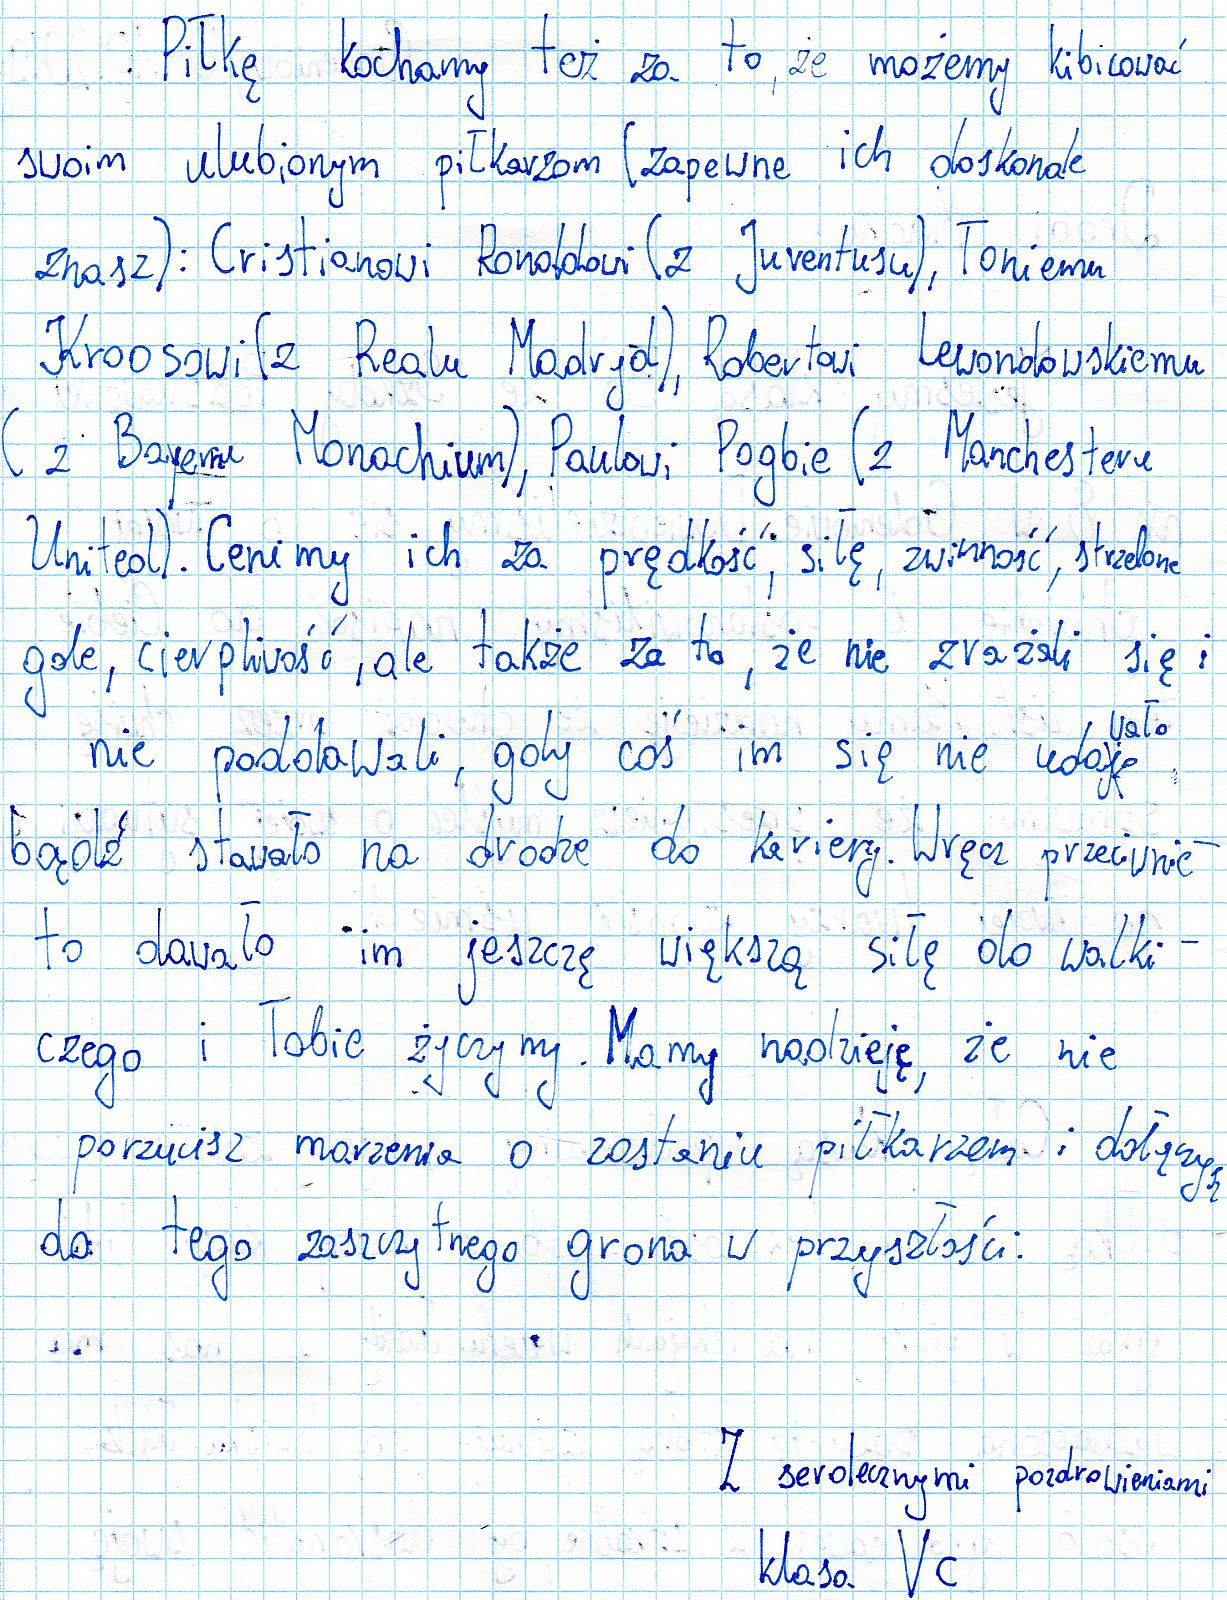 Piłkę kochamy też za to, że możemy kibicować
swoim ulubionym piłkarzom (zapewne ich doskonale
znasz): Cristianowi Ronaldowi (z Juventusu), Toniemu
Kroosowi (z Realu Madryd), Robertowi Lewandowskiemu
(z Bayernu Monachium), Paulowi Pogbie (z Manchesteru
United). Cenimy ich za prędkość, siłę, zwinność, strzelone
gole, cierpliwość, ale także za to, że nie zrażali się i
nie poddawali, gdy coś im się nie udawało
bądź stawało na drodze do kariery. Wręcz przeciwnie -
to dawało im jeszczę większą siłę do walki -
czego i Tobie życzymy. Mamy nadzieję, że nie
porzucisz marzenia o zostaniu piłkarzem i dołączysz
do tego zaszczytnego grona w przyszłości.
Z serdecznymi pozdrowieniami
klasa Vc